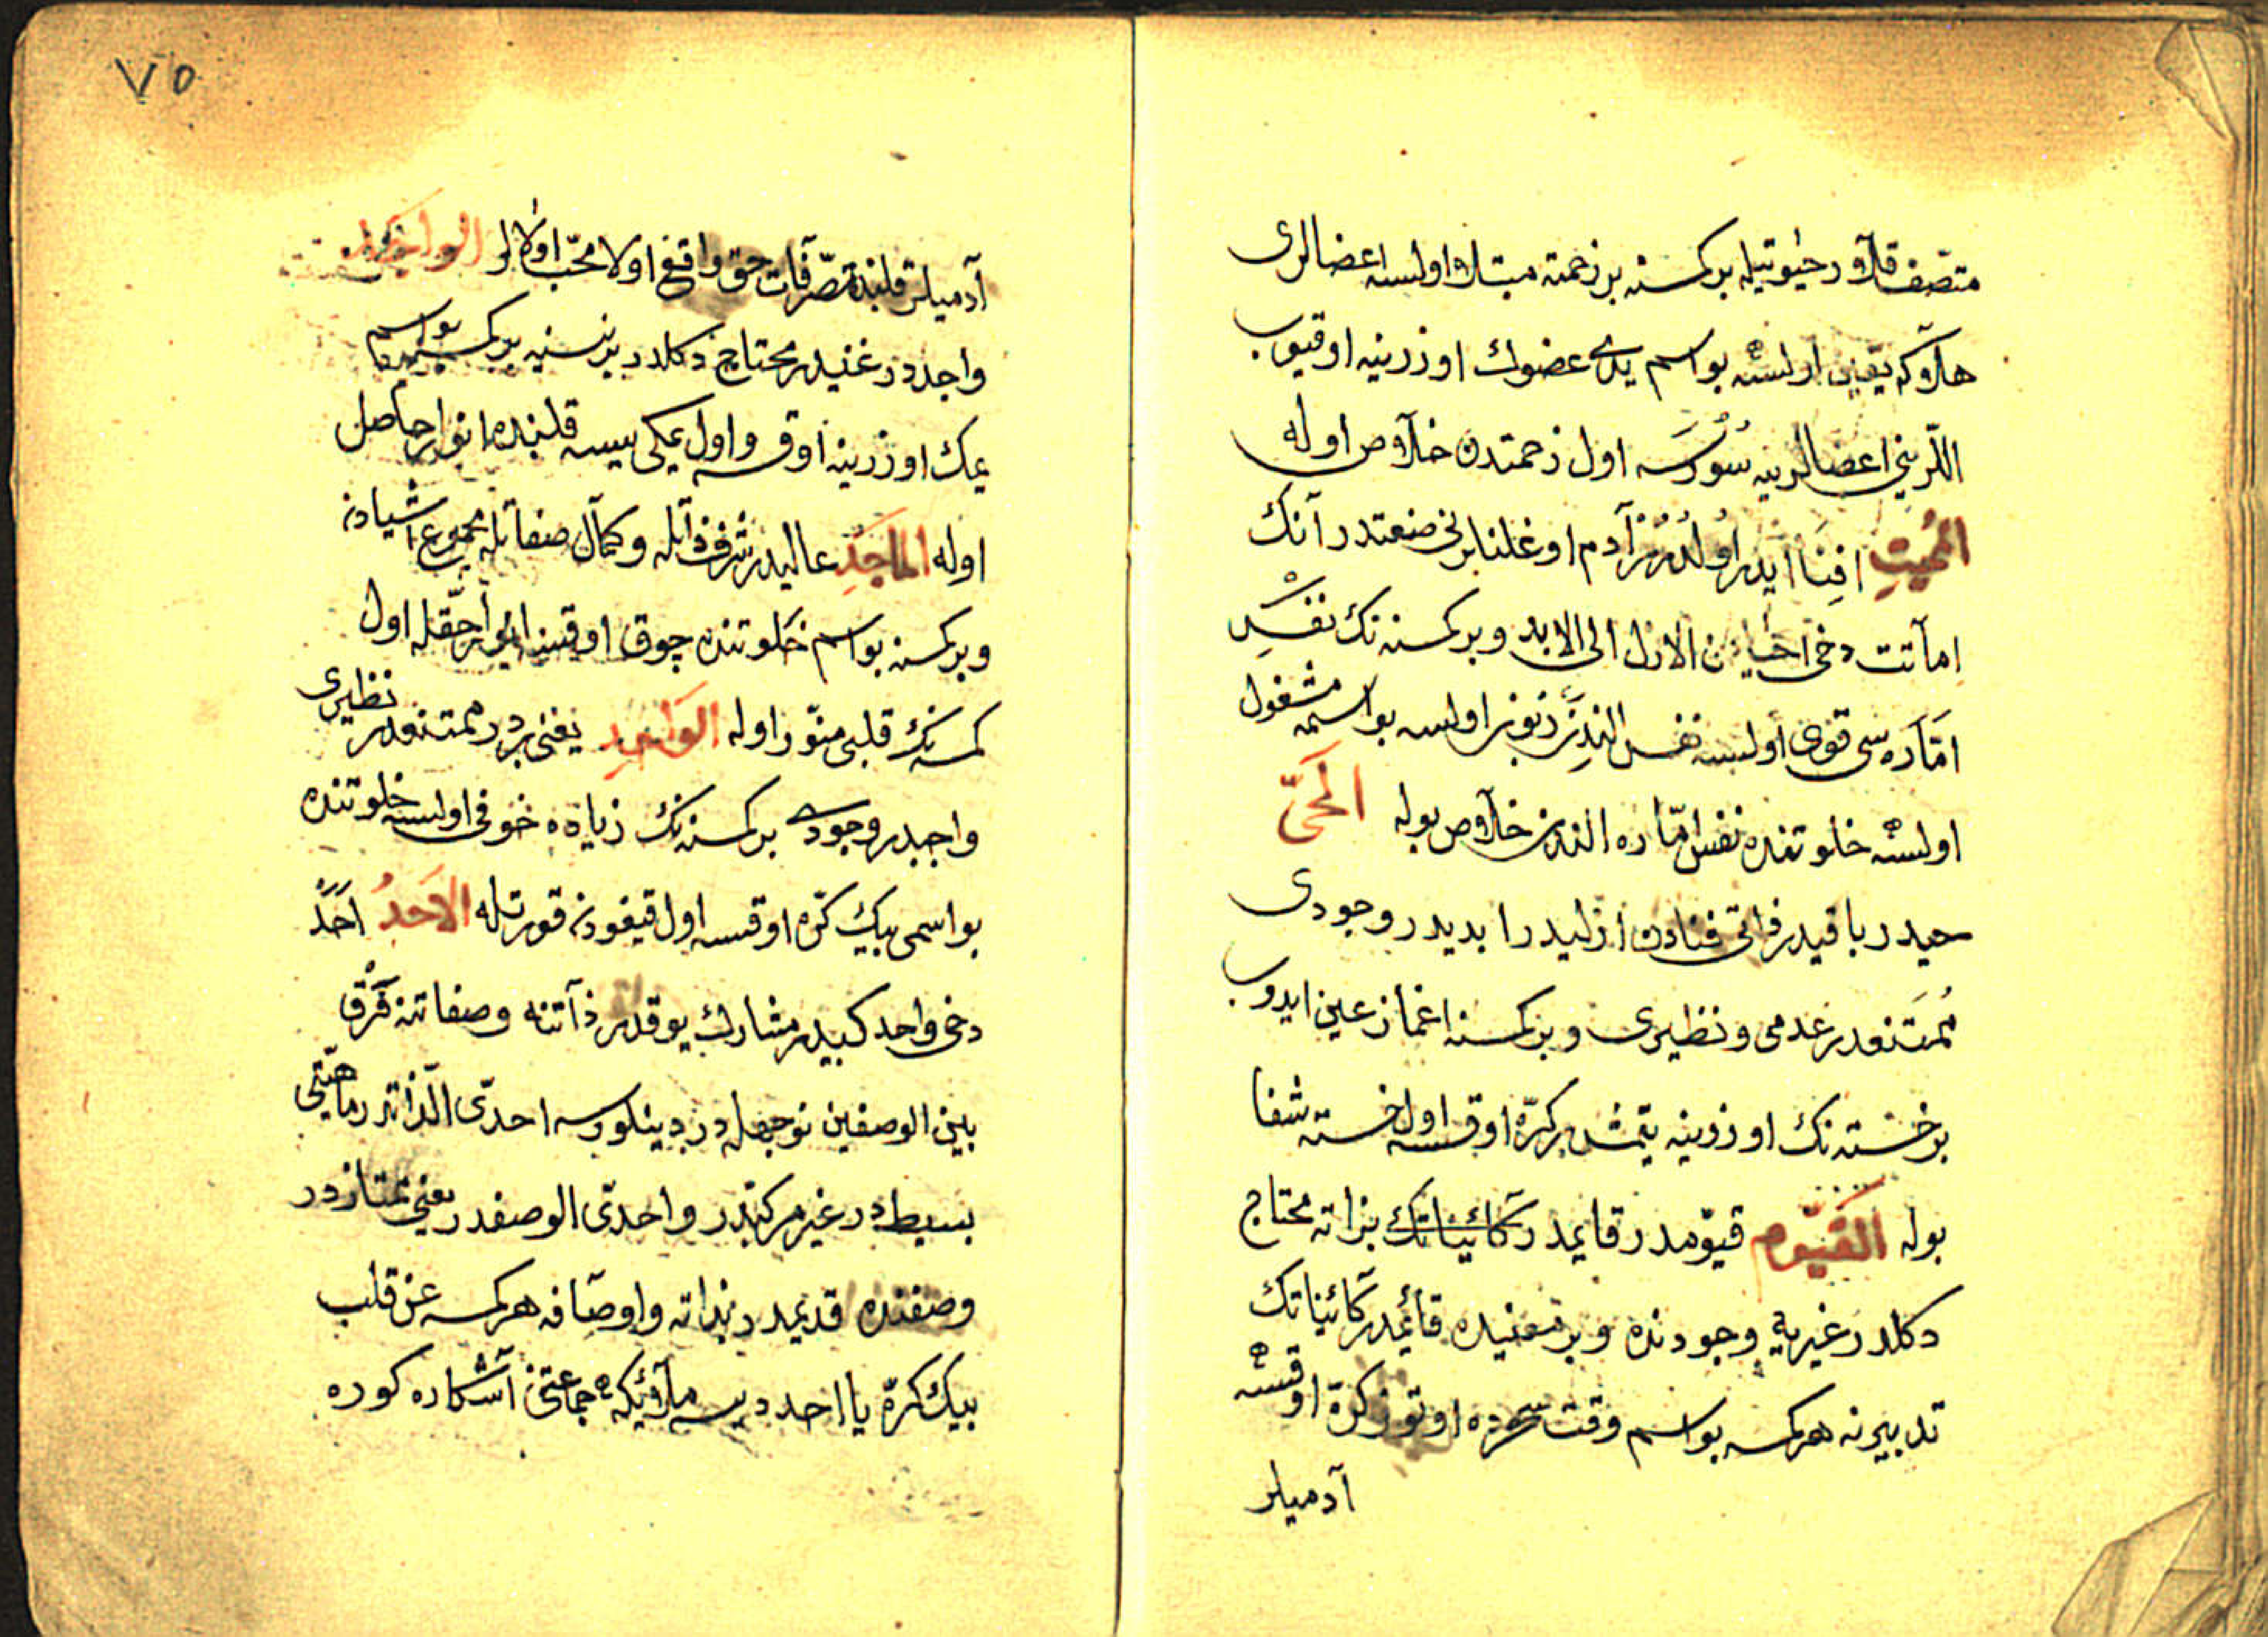 متصف قلاور حيوتيله بر كسنه بر زحمته مبتلا اولسه اعضالرى
هلاكه يقين اولسه بو اسم يدى عضوك اوزرينه اوقيوب
اللرينى اعضالرينه سورسه اول زحمتدن خلاص اوله
المميت افنا ايدر اولدرر آدم اوغلنا برنى صنعتدر آنك
اماتت دخى احيا من الازل الى الابد وبر كسنه نك نفس
اماره سى قوى اولسه نفس الندن زبون اولسه بو اسمه مشغول
اولسه خلوتنده نفس اماره الندن خلاص بوله الحىّ
حيدر باقيدر ذاتى فنادن ازليدر ابديدر وجودى
ممتنعدر عدمى ونظيرى وبر كسنه اغماز عين ايدوب
بر خسته نك اوزرينه يتمش بر كرّه اوقسه اول خسته شفا
بوله القيّوم قيّومدر قايمدر كائيناتك بذاته محتاج
دكلدر غيريه وجودنده وبر معنيده قائمدر كائيناتك
تدبيرنه هر كسه بو اسم وقت سحرده اوتوز كرّه اوقسه
آدميلر
٧٥
آدميلر قلبنده تصرّفات حق واقع اولا محبّ اولالر الواجد
واجددر غنيدر محتاج دكلدر بر نسنيه بر كسنه بو اسم
يمك اوزرينه اوقسه واول يمكى ييسه قلبنده انوار حاصل
اوله الماجد عاليدر شرف ذاتله وكمال صفاتله مجموع اشيادن
وبر كسنه بو اسم خلوتنده چوق اوقسه انوار حقله اول
كسنه نك قلبى منوّر اوله الواحد يعنى بردر ممتنعدر نظيرى
واجبدر وجودى بر كسنه نك زياده خوفى اولسه خلوتنده
بو اسمى بيك كرّه اوقسه اول قيغودن قورتله الاحد احد
دخى واحد كبيدر مشارك يوقدر ذاتنه وصفاتنه فرق
بين الوصفين نوجهله در دينلورسه احدىّ الذاتدر ماهيتى
بسيطدر غير مركبدر واحدىّ الوصفدر يعنى ممتازدر
وصفنده قديمدر بذاته واوصافه هر كسه عن قلب
بيك كرّه يا احد ديسه ملائيكه جماعتن آشكاره كوره